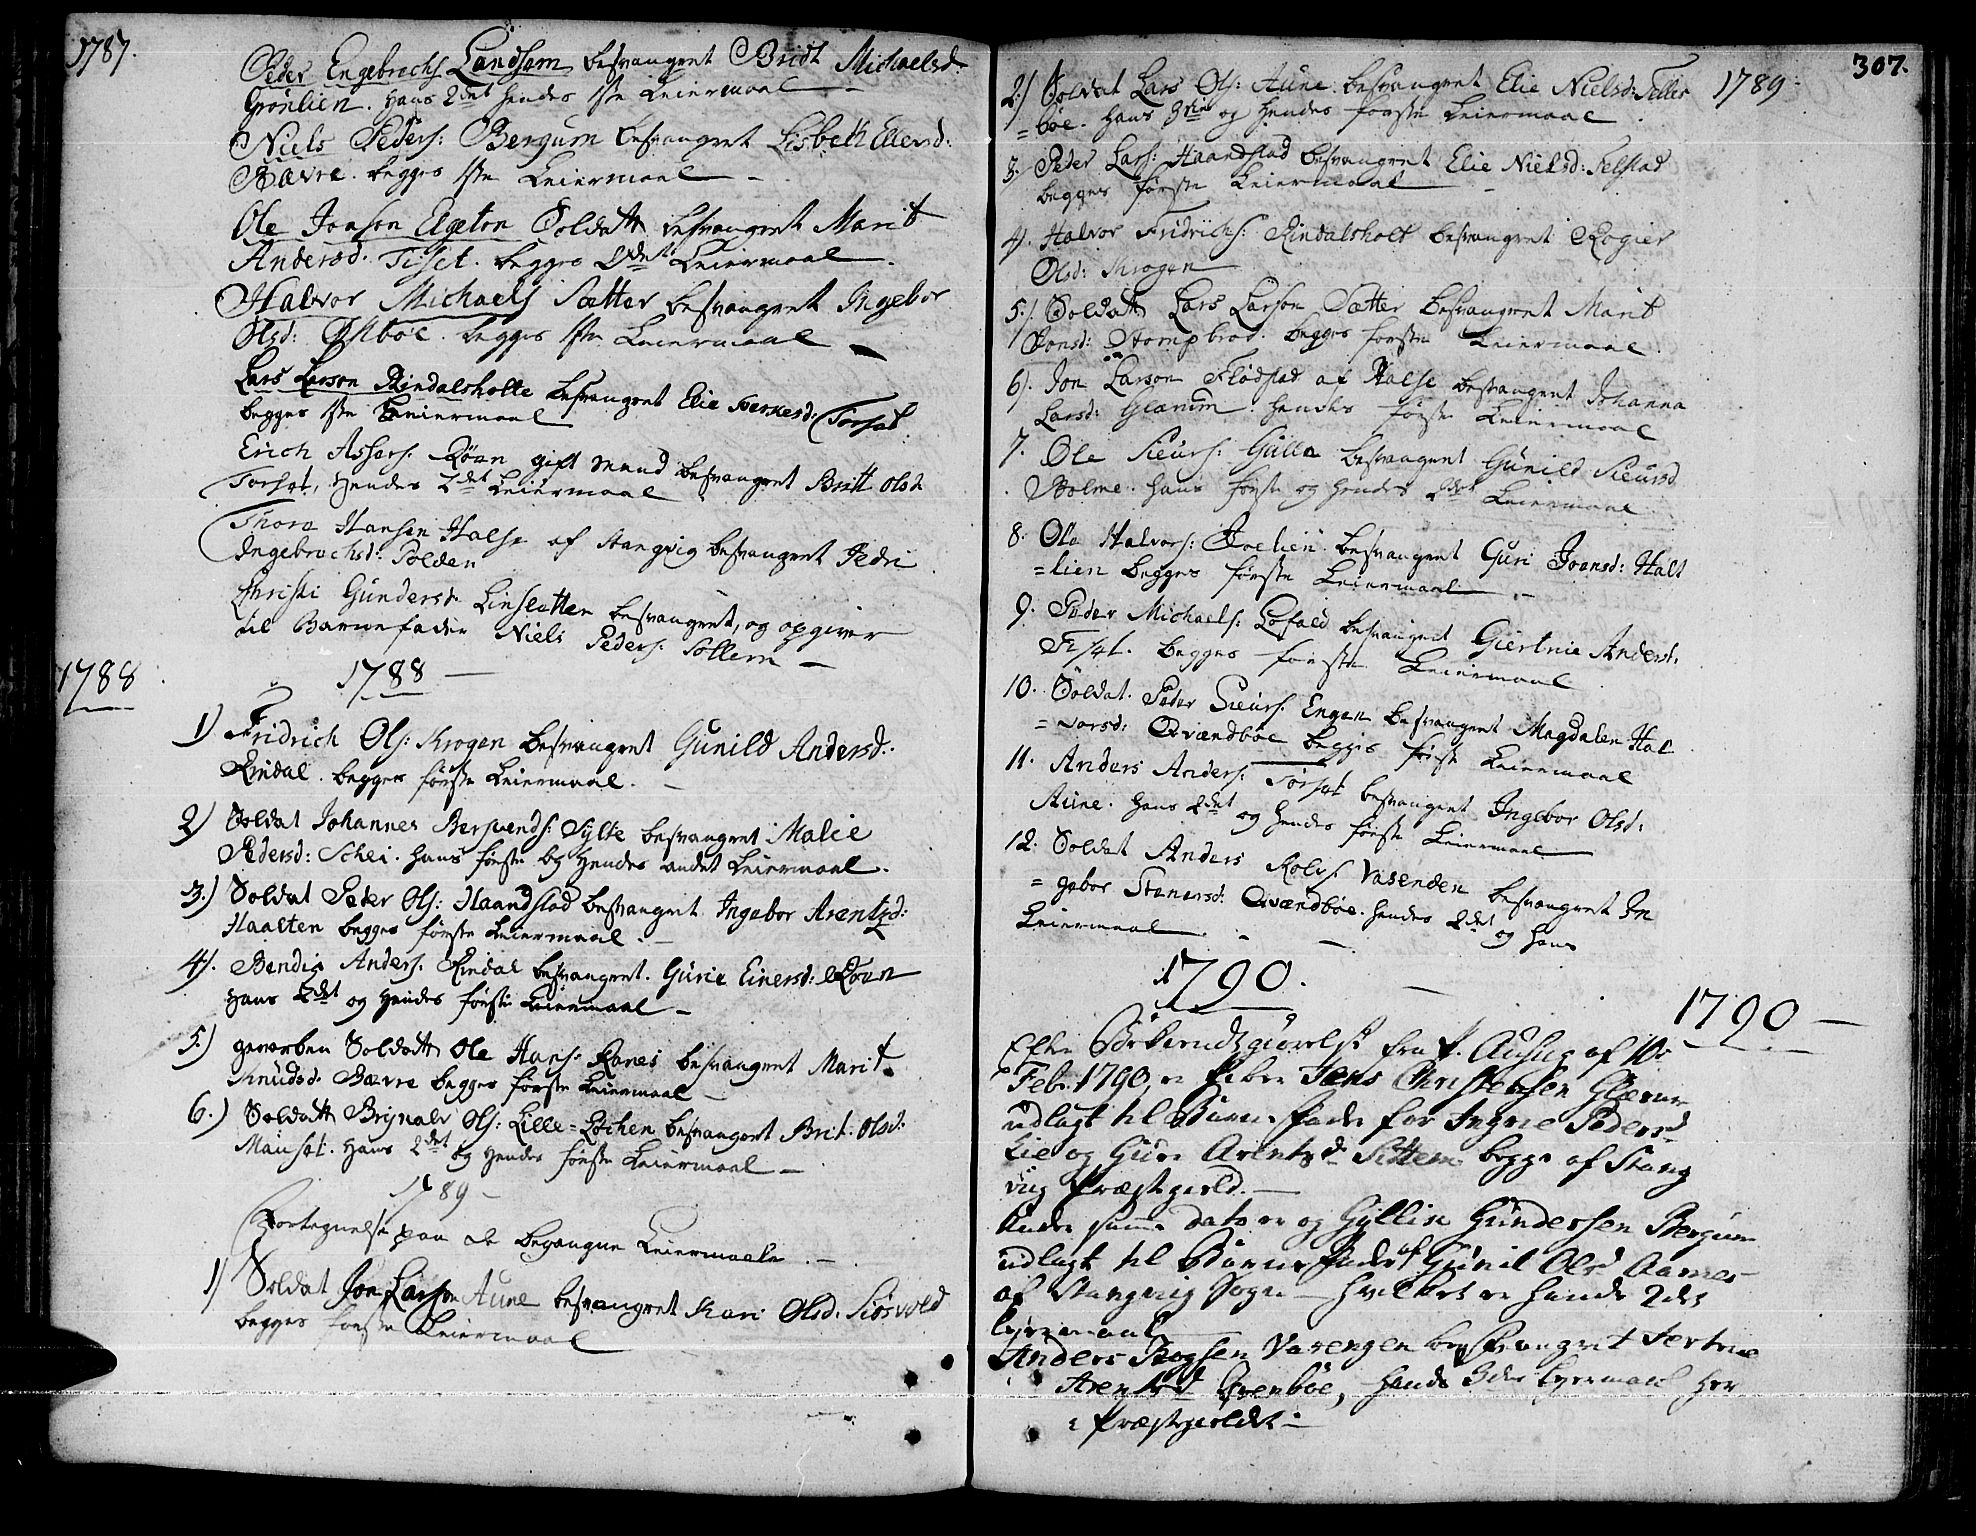 1787.
Peder Engebrechs. Landsem besvangret Bridt Michaelsd.
Grønlien. Hans 2det hendes 1ste Leiermaal –
Niels Peders: Bergum besvangret Lisbeth Ellend:
Bævre. begges 1ste Leiermaal –
Ole Jonson Elgeton Soldatt besvangret Marit
Andersd. Tiset. begges 2det Leiermaal.
Halvor Michaels Sætter besvangret Ingebor
Olsd: Østbøe. begges 1ste Leiermaal –
Lars Larson Rindalsholte besvangret Elie Sverkesd: Torset
begges 1ste Leiermaal
Erich Assers. Røen gift Mand besvangret Britt Olsd
Torset, Hendes 2det Leiermaal
Thore Hansen Halse af Stangvig besvangret Jedri
Ingebrechsd: Polden
Christi Gundersd. Linsletten besvangret, og opgiver
til Barnefader Niels Peders. Sollem –
1788
1788 –
1) Fridrich Ols: Krogen besvangret Gunild Andersd:
Rindal. begges første Leiermaal. –
2) Soldat Johannes Bersvends: Sylte besvangret Malie
Pedersd: Schei. hans første og Hendes andet Leiermaal.
3.) Soldat Peder Ols: Haandstad besvangret Ingebor Arentzd:
Haalten begges første Leiermaal. –
4). Bendix Anders. Rindal besvangret. Gurie Einersd: Røen
Hans 2det og Hendes første Leiermaal –
5.) geworben Soldatt Ole Hans: Ranes besvangret Marit
Knudsd. Bævre begges første Leiermaal –
6.) Soldatt Brynald Ols: Lille-Løchen besvangret Brit. Olsd.
Mauset. Hans 2det og Hendes første Leiermaal –
1789 –
Fortegnelse paa de begangne Leiermaale. –
1) Soldat Jon Larson Aune besvangret Kari Olsd. Siøsvold
begges første Leiermaal
307.
1789.
2.) Soldat Lars Ols: Aune. besvangret Elie Nielsd: Telles
=bøe. Hans 3die og Hendes første Leiermaal
3. Peder Lars: Haandstad besvangret Elie Nielsd: Telstad
begges første Leiermaal –
4). Halvor Fridrichs: Rindalsholt besvangret Rogier
Olsd: Krogen
5.). Soldatt Lars Larson Sætter besvangret Marit
Jonsd: Stompbroe. begges første Leiermaal.
6). Jon Larson Flødstad af Halse besvangret Johanna
Larsd: Glærum. Hendes første Leiermaal
7. Ole Siurs: Gulla besvangret Gunild Siursd
Bolme. hans første og Hendes 2det Leiermaal
8. Ole Halvors: Joelien. besvangret Guri Joensd: Halt
=lien begges første Leiermaal. –
9. Peder Michaels: Løfald besvangret Giertrue Andersd.
Tiset. begges første Leiermaal
10. Soldat. Peder Siurs. Engen besvangret Magdalen Hal
=vorsd: Qvændbøe begges første Leiermaal
11. Anders Anders: Torset besvangret Ingebor Olsd:
Aune. Hans 2det og Hendes første Leiermaal
12. Soldat Anders Rolvs. Vasenden besvangret In
=gebor Stenersd. Qvændbøe. Hendes 2det og Hans
Leiermaal. –
1790. –
1790 –
Efter Bekiendtgiørelse fra P. Aushug af 10de
Feb: 1790, er Peder Jens Christensen Glærum
udlagt til Barne Fader for Ingrie Pedersd
Lie og Guri Arentzd Settem begge af Stang
vig Præstegield. –
Under samme Dato er og Gyllise Gundersen Bergum
udlagt til Barne Fader af Gunil Olsd Aarnes
af Stangvig Sogn – hvilket er hands 2det
Leyermaal
Anders Rogsen Varengen besvangret Jertrue
Arentzd Qvenbøe, hands 3die Leyermaal her
i Præstegieldet –